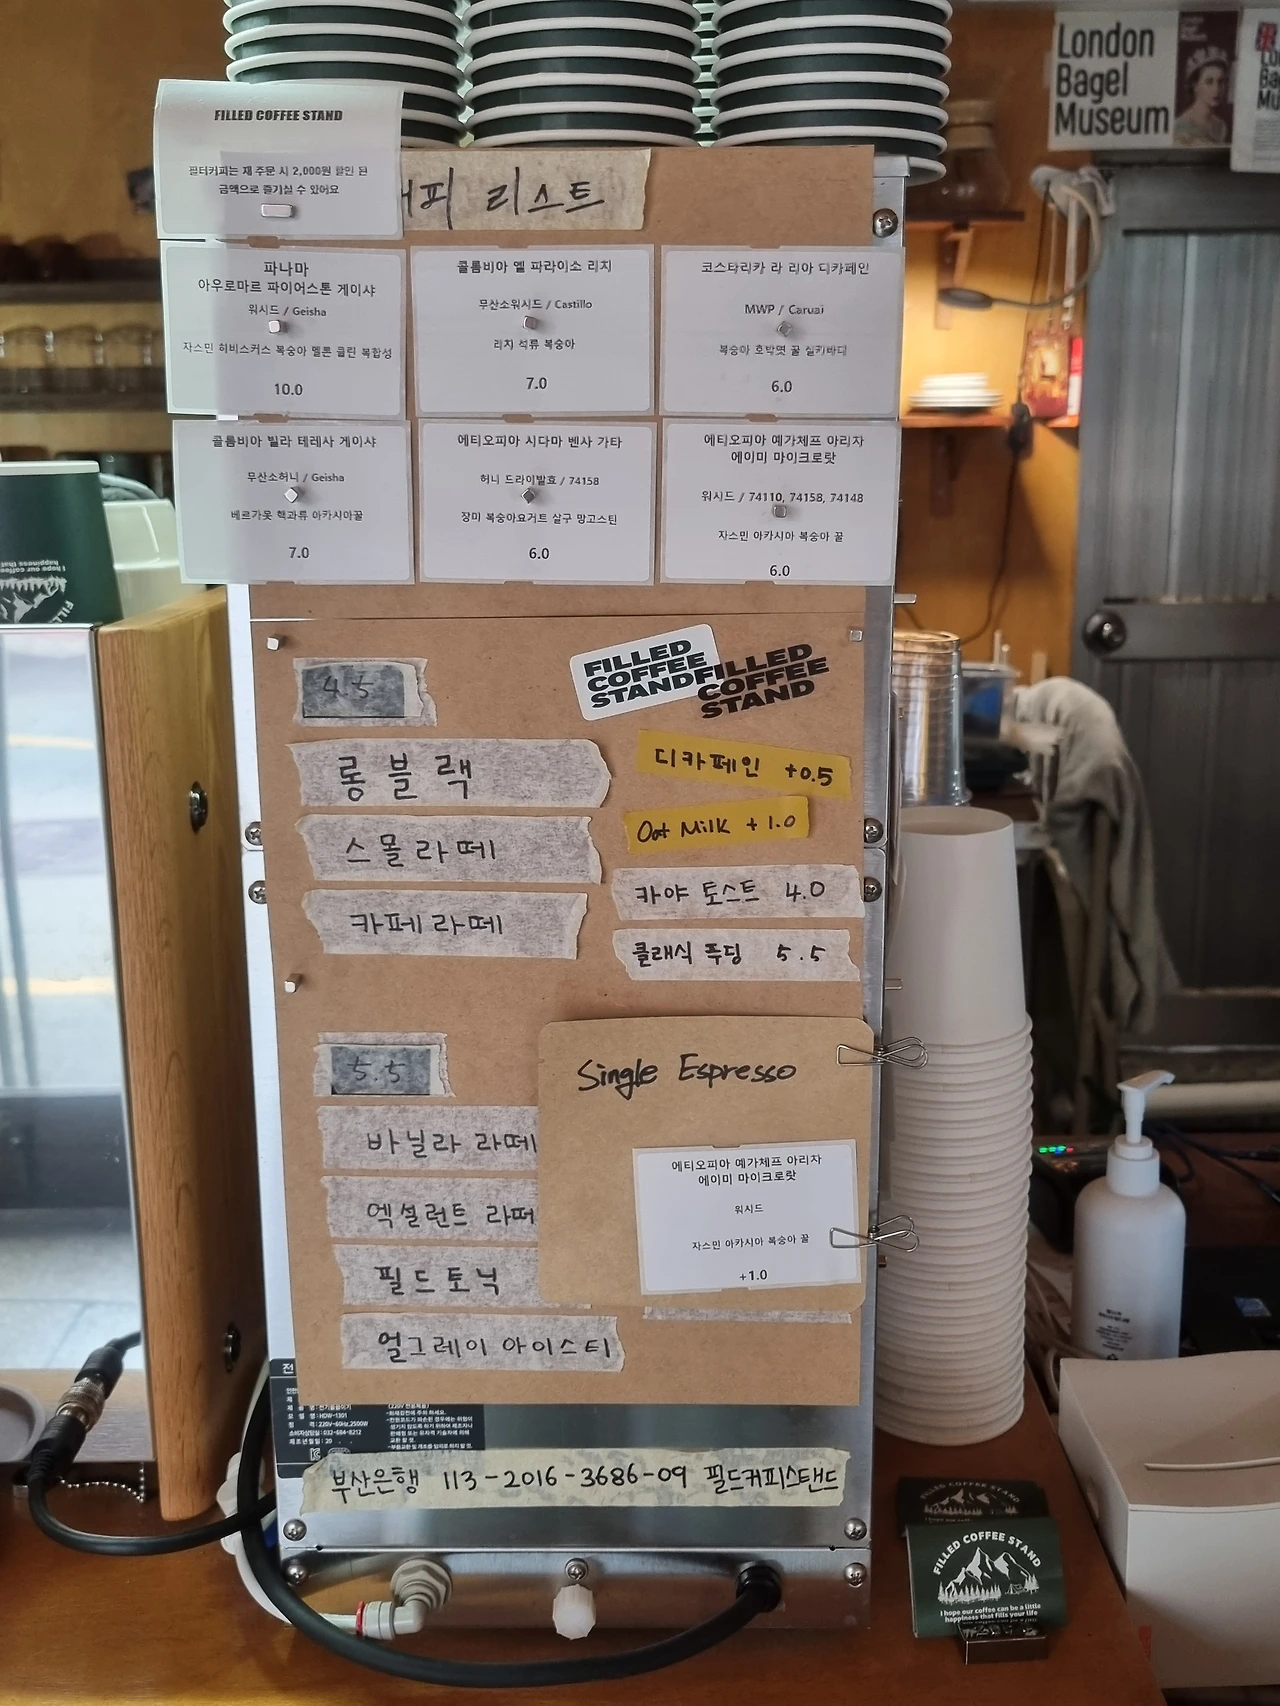 London
Bagel
Museum
FILLED COFFEE STAND
필터커피는 재 주문 시 2,000원 할인 된
금액으로 즐기실 수 있어요
커피 리스트
파나마
아우로마르 파이어스톤 게이샤
워시드 / Geisha
자스민 히비스커스 복숭아 멜론 클린 복합성
10.0
콜롬비아 엘 파라이소 리치
무산소워시드 / Castillo
리치 석류 복숭아
7.0
코스타리카 라 리아 디카페인
MWP / Caruai
복숭아 호박엿 꿀 실키바디
6.0
콜롬비아 빌라 테레사 게이샤
무산소허니 / Geisha
베르가못 핵과류 아카시아꿀
7.0
에티오피아 시다마 벤사 가타
허니 드라이발효 / 74158
장미 복숭아요거트 살구 망고스틴
6.0
에티오피아 예가체프 아리차
에이미 마이크로랏
워시드 / 74110, 74158, 74148
자스민 아카시아 복숭아 꿀
6.0
FILLED
COFFEE
STAND
FILLED
COFFEE
STAND
4.5
롱블랙
스몰라떼
카페라떼
디카페인 +0.5
Oat Milk +1.0
카야 토스트 4.0
클래식 푸딩 5.5
5.5
바닐라 라떼
엑설런트 라떼
필드토닉
얼그레이 아이스티
Single Espresso
에티오피아 예가체프 아리차
에이미 마이크로랏
워시드
자스민 아카시아 복숭아 꿀
+1.0
부산은행 113-2016-3686-09 필드커피스탠드
FILLED COFFEE STAND
I hope our coffee can be a little
happiness that fills your life